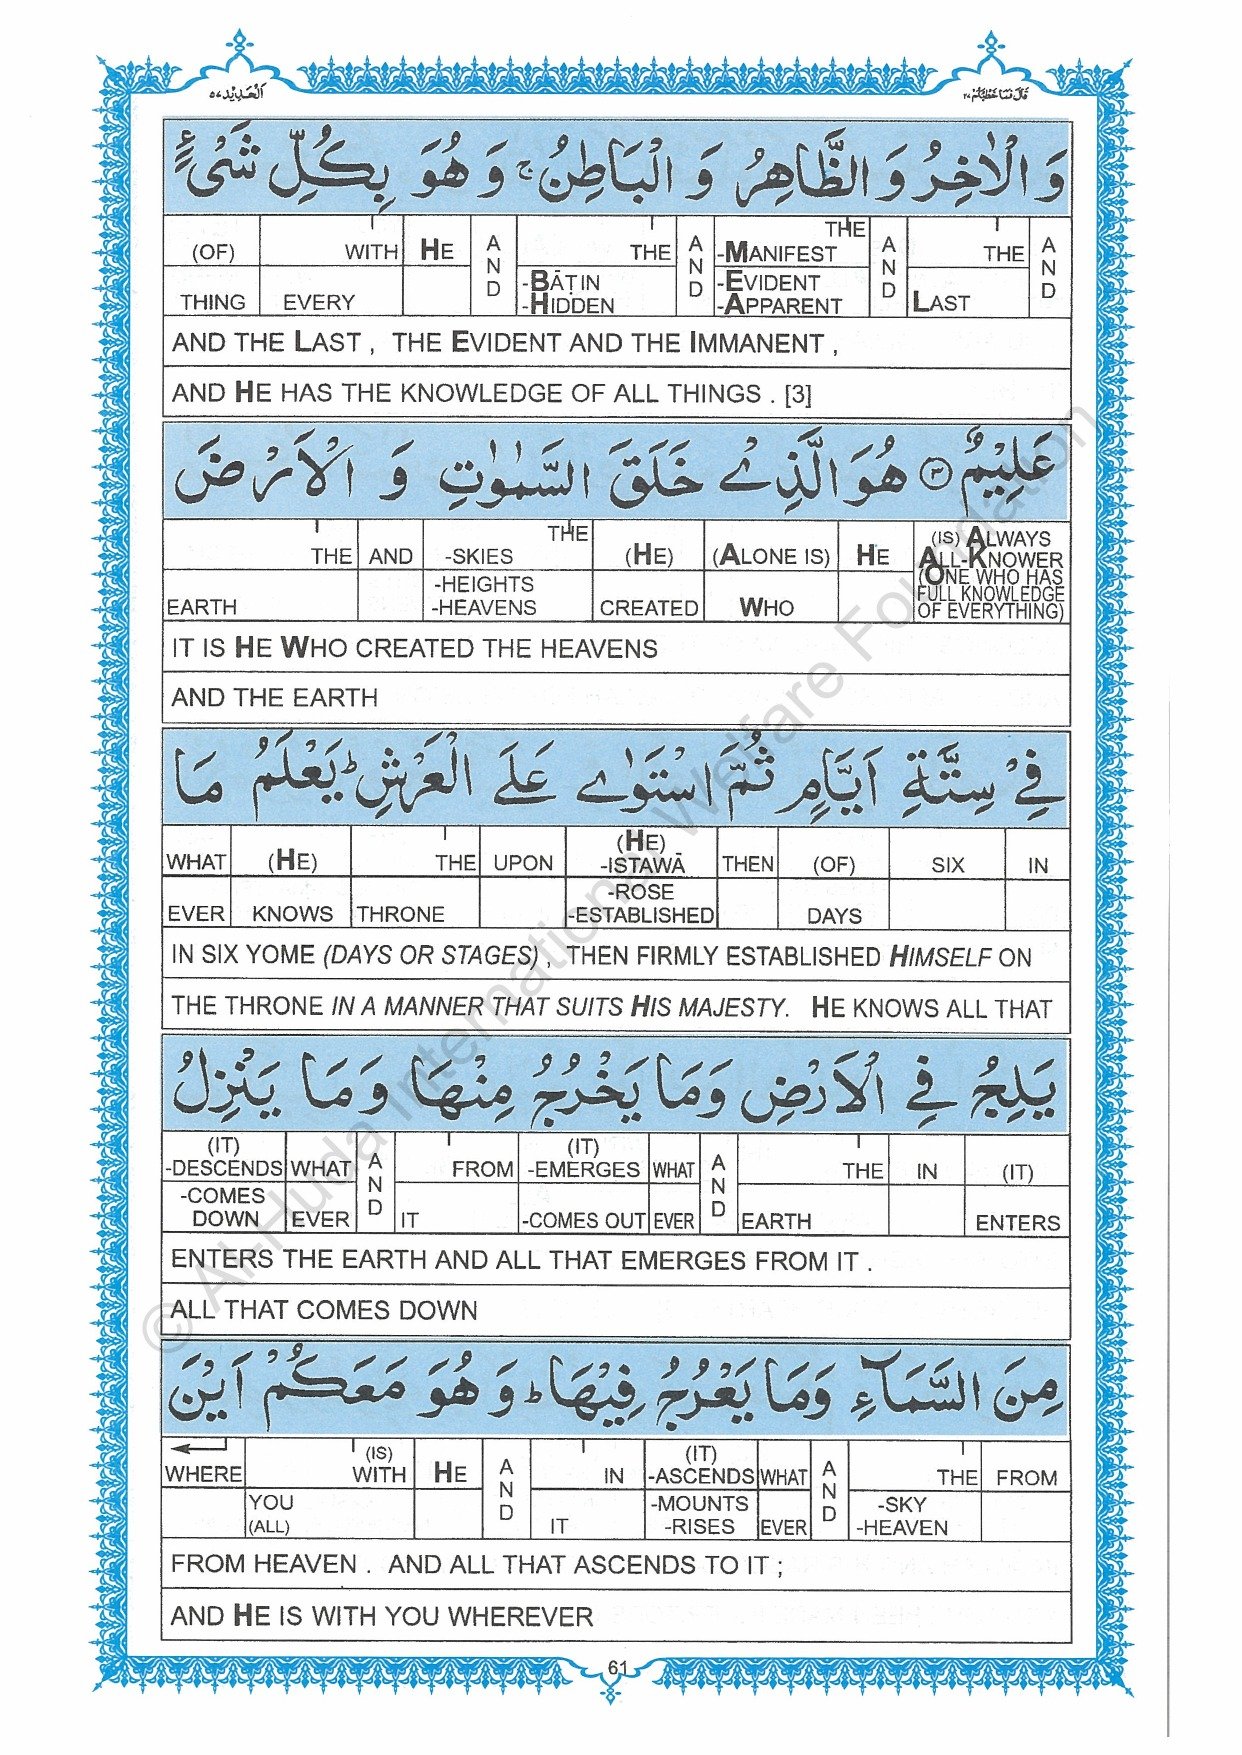 قَالَ فَمَا خَطْبُكُمْ ٢٧
اَلْحَدِيْد ٥٧
وَ الْاٰخِرُ وَ الظَّاهِرُ وَ الْبَاطِنُ ۚ وَ هُوَ بِكُلِّ شَىْءٍ
(OF) THING WITH EVERY HE AND THE -BĀṬIN -HIDDEN AND THE -MANIFEST -EVIDENT -APPARENT AND THE LAST AND
AND THE LAST , THE EVIDENT AND THE IMMANENT ,
AND HE HAS THE KNOWLEDGE OF ALL THINGS . [3]
عَلِيْمٌ ﴿٣﴾ هُوَ الَّذِىْ خَلَقَ السَّمٰوٰتِ وَ الْاَرْضَ
THE EARTH AND THE -SKIES -HEIGHTS -HEAVENS (HE) CREATED (ALONE IS) WHO HE (IS) ALWAYS ALL-KNOWER (ONE WHO HAS FULL KNOWLEDGE OF EVERYTHING)
IT IS HE WHO CREATED THE HEAVENS
AND THE EARTH
فِىْ سِتَّةِ اَيَّامٍ ثُمَّ اسْتَوٰى عَلَى الْعَرْشِ ؕ يَعْلَمُ مَا
WHAT EVER (HE) KNOWS THE THRONE UPON (HE) -ISTAWĀ -ROSE -ESTABLISHED THEN (OF) DAYS SIX IN
IN SIX YOME (DAYS OR STAGES) , THEN FIRMLY ESTABLISHED HIMSELF ON
THE THRONE IN A MANNER THAT SUITS HIS MAJESTY. HE KNOWS ALL THAT
يَلِجُ فِى الْاَرْضِ وَمَا يَخْرُجُ مِنْهَا وَمَا يَنْزِلُ
(IT) -DESCENDS -COMES DOWN WHAT EVER AND FROM IT (IT) -EMERGES -COMES OUT WHAT EVER AND THE EARTH IN (IT) ENTERS
ENTERS THE EARTH AND ALL THAT EMERGES FROM IT .
ALL THAT COMES DOWN
مِنَ السَّمَآءِ وَمَا يَعْرُجُ فِيْهَا ؕ وَ هُوَ مَعَكُمْ اَيْنَ
WHERE (IS) WITH YOU (ALL) HE AND IN IT (IT) -ASCENDS -MOUNTS -RISES WHAT EVER AND THE -SKY -HEAVEN FROM
FROM HEAVEN . AND ALL THAT ASCENDS TO IT ;
AND HE IS WITH YOU WHEREVER
61
© Al-Huda International Welfare Foundation